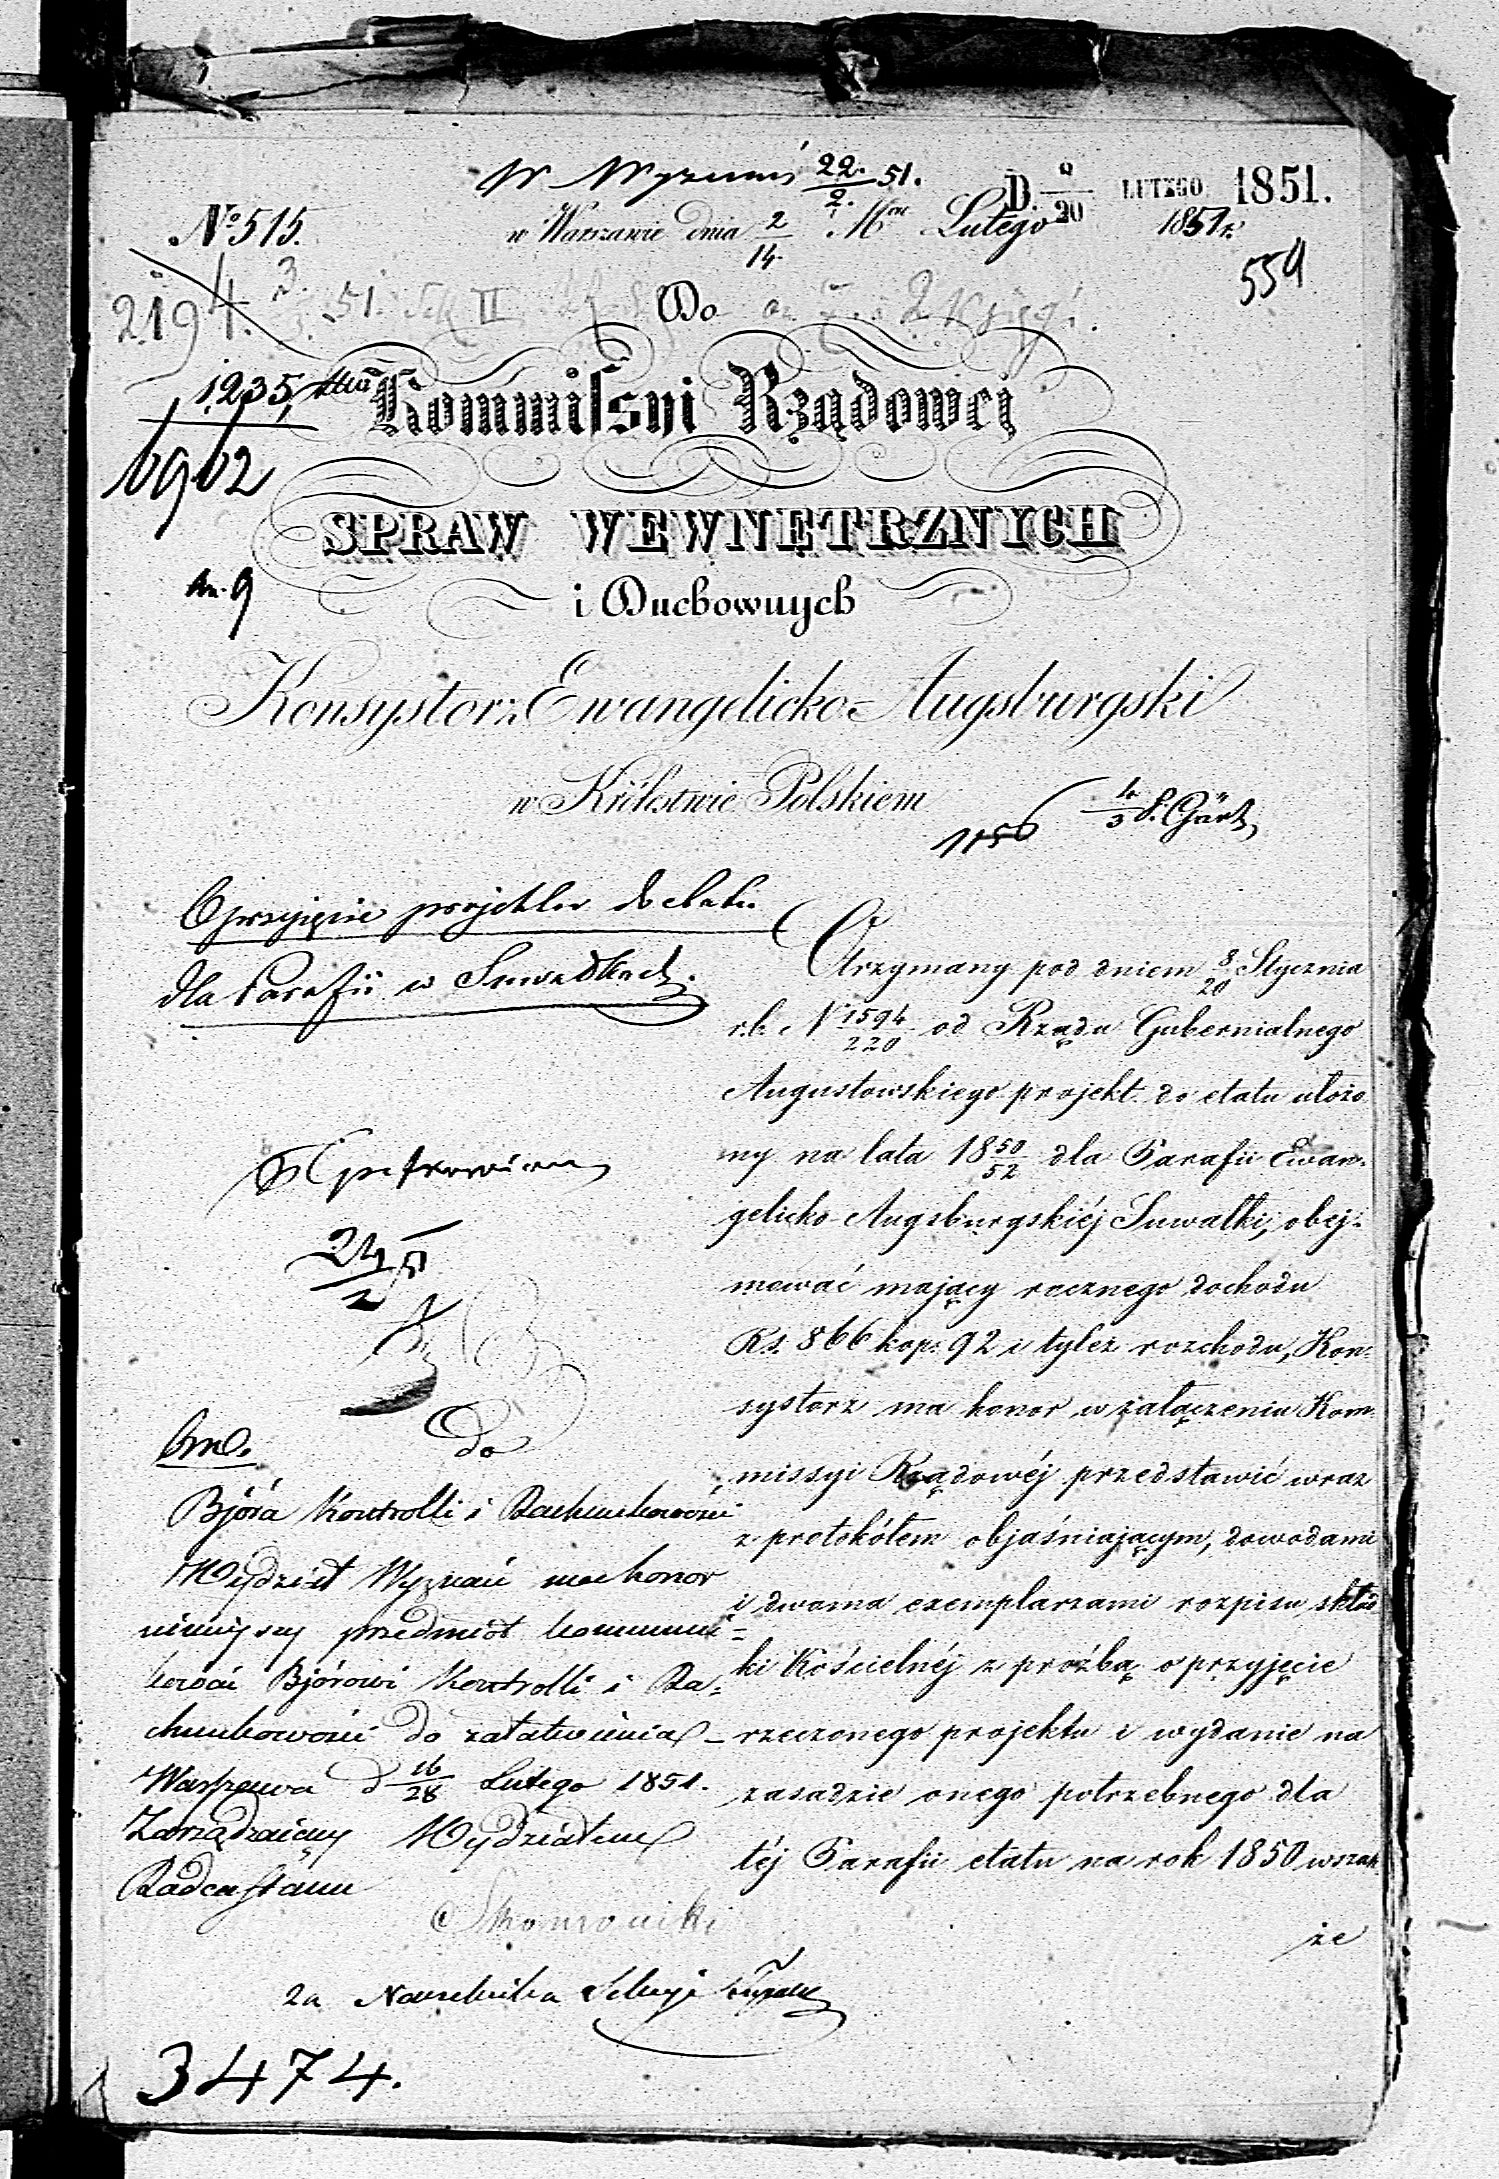 W Wyznań 22/2. 51.
D. 8/20 LUTEGO 1851.
№ 515.
w Warszawie dnia 2/14 Mca Lutego 1851 r.
559
2194. 3. 51. II
Do
1235
Kommissyi Rządowej
6962
SPRAW WEWNĘTRZNYCH
An. 9
i Duchownych
Konsystorz Ewangelicko-Augsburgski
w Królestwie Polskiem
1156
4/3
O przyjęcie projektu do etatu
dla Parafii w Suwałkach.
Otrzymany pod dniem 8/20 Stycznia
r.b. N 1594/220 od Rządu Gubernialnego
Augustowskiego projekt do etatu ułożo
ny na lata 18 50/52 dla Parafii Ewan-
gelicko-Augsburgskiéj Suwałki, obej-
mować mający rocznego dochodu
Rs. 866 kop. 92 i tyleż rozchodu, Kon-
systorz ma honor w załączeniu Kom-
missyi Rządowéj przedstawić wraz
z protokółem objaśniającym, dowodami
i dwoma exemplarzami rozpisu skład
ki Kościelnéj z prośbą o przyjęcie
rzeczonego projektu i wydanie na
zasadzie onego potrzebnego dla
téj Parafii etatu na rok 1850 wszak
że
24/2
Do
Bjóra Kontrolli i Rachunkowości
Wydział Wyznań ma honor
niniejszy przedmiot kommuni=
kować Bjórowi Kontrolli i Ra=
chunkowości do załatwienia
Warszawa d 16/28 Lutego 1851.
Zarządzający Wydziałem
Radca Stanu
za Naczelnika Sekcyi
3474.